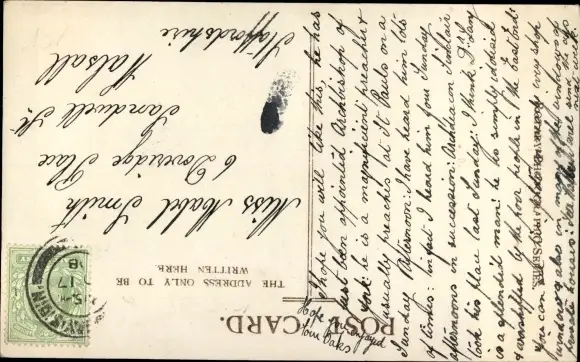 POST CARD.
THE ADDRESS ONLY TO BE
WRITTEN HERE.
Miss Mabel Smith
6 Doveridge Place
Sandwell St.
Walsall
Staffordshire
I hope you will like this, he has
just been appointed Archbishop of
York he is a magnificent preacher &
usually preaches at St Pauls on a
Sunday Afternoon: I have heard him lots
of times: in fact I heard him four Sunday
afternoons in succession: Archdeacon Sinclair
took his place last Sunday: I think Dr Lang
is a splendid man: he is simply idolised
&
worshipped by the poor people in the East End:
you can his in nearly every shop
windows & also in many of the windows of
private houses:
Hope you enjoyed
your Oaks